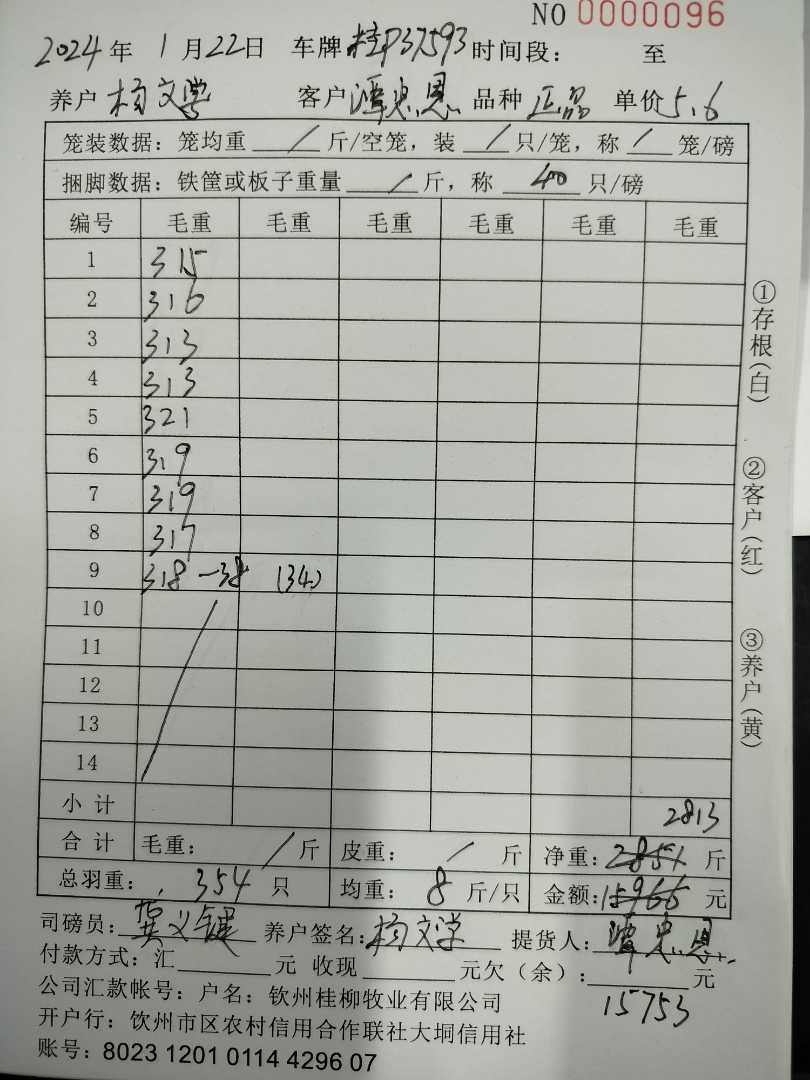 NO 0000096
2024年 1月22日 车牌 桂P37593 时间段： 至
养户 杨文学 客户 潭忠恩 品种 正品 单价 5.6
笼装数据：笼均重 / 斤/空笼，装 / 只/笼，称 / 笼/磅
捆脚数据：铁筐或板子重量 / 斤，称 40 只/磅
编号 毛重 毛重 毛重 毛重 毛重 毛重
1 315
2 316
3 313
4 313
5 321
6 319
7 319
8 317
9 318 -38 (34)
10
11
12
13
14
小计 2813
合计 毛重： / 斤 皮重： / 斤 净重：2851 斤
总羽重： 354 只 均重： 8 斤/只 金额：15966 元
司磅员： 龚义键 养户签名：杨文学 提货人：潭忠恩
付款方式：汇 元 收现 元欠（余）： 元
15753
公司汇款帐号：户名：钦州桂柳牧业有限公司
开户行：饮州市区农村信用合作联社大垌信用社
账号：8023 1201 0114 4296 07
①存根(白)
②客户(红)
③养户(黄)